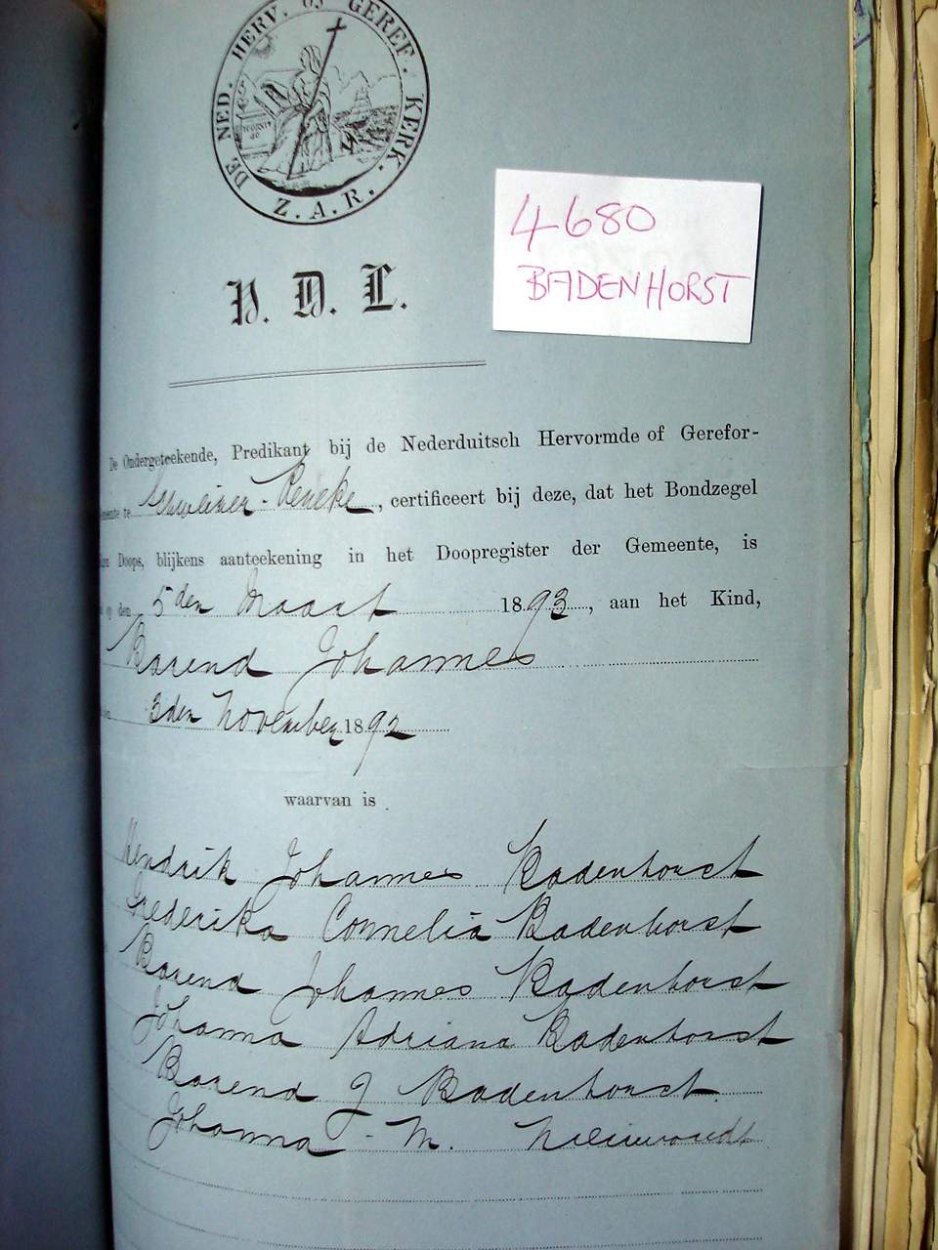 DE NED. HERV. of GEREF. KERK.
Z. A. R.
4680
BADENHORST
V. D. L.
De Ondergeteekende, Predikant bij de Nederduitsch Hervormde of Gerefor-
te Schweizer-Reneke, certificeert bij deze, dat het Bondzegel
Doops, blijkens aanteekening in het Doopregister der Gemeente, is
den 5den Maart 1893, aan het Kind,
Barend Johannes
3den November 1892
waarvan is
Hendrik Johannes Badenhorst
Frederika Cornelia Badenhorst
Barend Johannes Badenhorst
Johanna Adriana Badenhorst
Barend J Badenhorst
Johanna M.